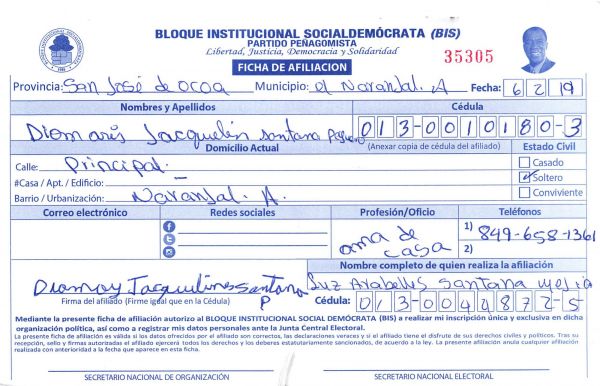 BLOQUE INSTITUCIONAL SOCIALDEMÓCRATA (BIS)
PARTIDO PEÑAGOMISTA
Libertad, Justicia, Democracia y Solidaridad
35305
FICHA DE AFILIACION
Provincia: San José de ocoa Municipio: el Naranjal. A Fecha: 6 2 19
Nombres y Apellidos Cédula
Diomaris Jacquelin Santana 013-0010180-3
Domicilio Actual (Anexar copia de cédula del afiliado) Estado Civil
Calle: Principal. Casado
#Casa / Apt. / Edificio: Soltero
Barrio / Urbanización: Naranjal. A. Conviviente
Correo electrónico Redes sociales Profesión/Oficio Teléfonos
ama de casa
1) 849-658-1361
2)
Nombre completo de quien realiza la afiliación
Jacqueline Santana P Luz Arabelis Santana mejia
Firma del afiliado (Firme igual que en la Cédula) Cédula: 013-0044872-5
Mediante la presente ficha de afiliación autorizo al BLOQUE INSTITUCIONAL SOCIAL DEMÓCRATA (BIS) a realizar mi inscripción única y exclusiva en dicha
organización política, así como a registrar mis datos personales ante la Junta Central Electoral.
La presente ficha de afiliación es válida si los datos ofrecidos por el afiliado son correctos, las declaraciones veraces y si el afiliado tiene el disfrute de sus derechos civiles y políticos. Tras su
recepción, sello y firmas autorizadas el afiliado ejercerá todos los derechos y los deberes estatutariamente sancionados, de acuerdo a la ley. La presente afiliación anula cualquier afiliación
realizada con anterioridad a la fecha que aparece en esta ficha.
SECRETARIO NACIONAL DE ORGANIZACIÓN SECRETARIO NACIONAL ELECTORAL